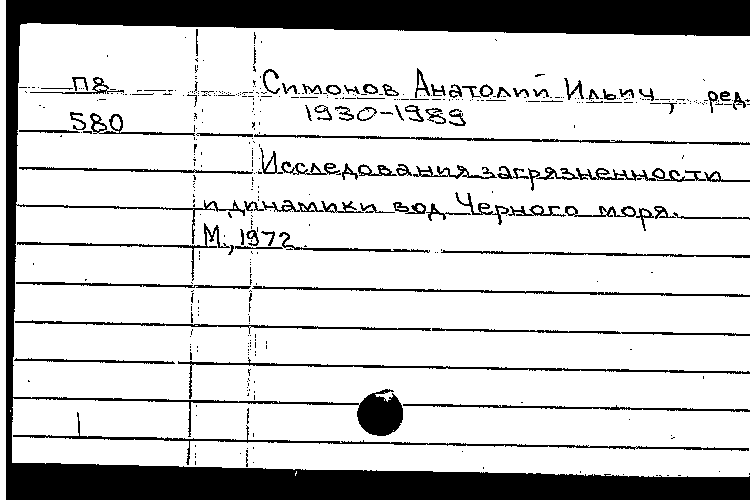 П8 Симонов Анатолий Ильич, ред.
580 1930-1989
Исследования загрязненности
и динамики вод Черного моря.
М., 1972